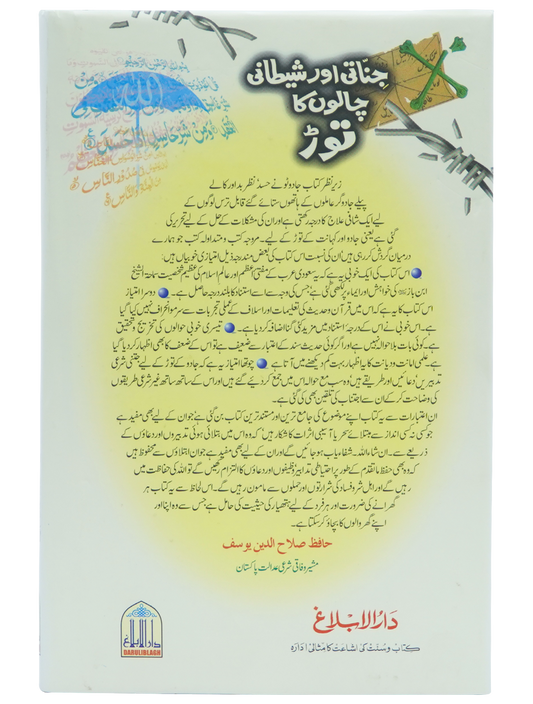 جنّاتی اور شیطانی
چالوں کا
توڑ
زیر نظر کتاب جادو ٹونے حسد نظر بد اور کالے
پیلے جادوگر عاملوں کے ہاتھوں ستائے گئے قابل ترس لوگوں کے
لیے ایک شافی علاج کا درجہ رکھتی ہے اور ان کی مشکلات کے حل کے لیے تحریر کی
گئی ہے یعنی جادو اور کہانت کے توڑ کے لیے۔ مروجہ کتب و متداولہ کتب جو ہمارے
درمیان گردش کر رہی ہیں ان کی نسبت اس کتاب کی بعض مندرجہ ذیل امتیازی خوبیاں ہیں:
اس کتاب کی ایک خوبی یہ ہے کہ یہ سعودی عرب کے مفتی اعظم اور عالم اسلام کی عظیم شخصیت سماحۃ الشیخ
ابن باز کی خواہش اور ایماء پر لکھی گئی ہے جس کی وجہ سے اسے استناد کا بلند درجہ حاصل ہے۔ دوسرا امتیاز
اس کتاب کا یہ ہے کہ اس میں قرآن و حدیث کی تعلیمات اور اسلاف کے عملی تجربات سے سرمو انحراف نہیں کیا گیا
ہے۔ اس خوبی نے اس کے درجہ استناد میں مزید کئی گنا اضافہ کر دیا ہے۔ تیسری خوبی حوالوں کی تخریج و تحقیق
ہے۔ کوئی بات بلا حوالہ نہیں ہے اور اگر کوئی حدیث سند کے اعتبار سے ضعیف ہے تو اس کے ضعف کا بھی اظہار کر دیا گیا
ہے۔ علمی امانت و دیانت کا یہ اظہار بہت کم دیکھنے میں آتا ہے چوتھا امتیاز یہ ہے کہ جادو کے توڑ کے لیے جتنی شرعی
تدبیریں دعائیں اور طریقے ہیں وہ سب مع حوالہ اس میں جمع کر دیئے گئے ہیں اور اس کے ساتھ ساتھ غیر شرعی طریقوں
کی وضاحت کر کے ان سے اجتناب کی تلقین بھی کی گئی ہے۔
ان اعتبارات سے یہ کتاب اپنے موضوع کی جامع ترین اور مستند ترین کتاب بن گئی ہے جو ان کے لیے بھی مفید ہے
جو کسی نہ کسی انداز سے مبتلائے سحر یا آسیبی اثرات کا شکار ہیں کہ وہ اس میں بتلائی ہوئی تدبیروں اور دعاؤں کے
ذریعے سے۔ ان شاء اللہ۔ شفاء یاب ہو جائیں گے اور ان کے لیے بھی مفید ہے جو ان ابتلاؤں سے محفوظ ہیں
کہ وہ بھی حفظ ما تقدم کے طور پر احتیاطی تدابیر وظیفوں اور دعاؤں کا التزام رکھیں گے تو اللہ کی حفاظت میں
رہیں گے اور اہل شر و فساد کی شرارتوں اور حملوں سے مامون رہیں گے۔ اس لحاظ سے یہ کتاب ہر
گھرانے کی ضرورت اور ہر فرد کے لیے ہتھیار کی حیثیت کی حامل ہے جس سے وہ اپنا اور
اپنے گھر والوں کا بچاؤ کر سکتا ہے۔
حافظ صلاح الدین یوسف
مشیر وفاقی شرعی عدالت پاکستان
دَارُالابلاغ
کتاب و سنت کی اشاعت کا مثالی ادارہ
دارالابلاغ
DARULIBLAGH